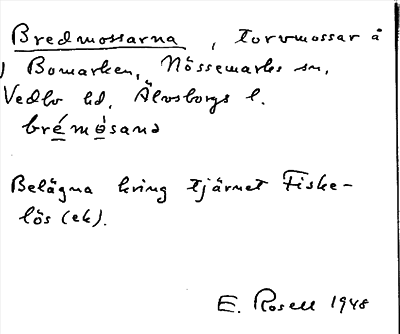 Bredmossarna, torvmossar å
Bomarken, Nössemarks sn,
Vedbo hd, Älvsborgs l.
brémòsanə
Belägna kring tjärnet Fiske-
lös (ek).
E. Rosell 1948